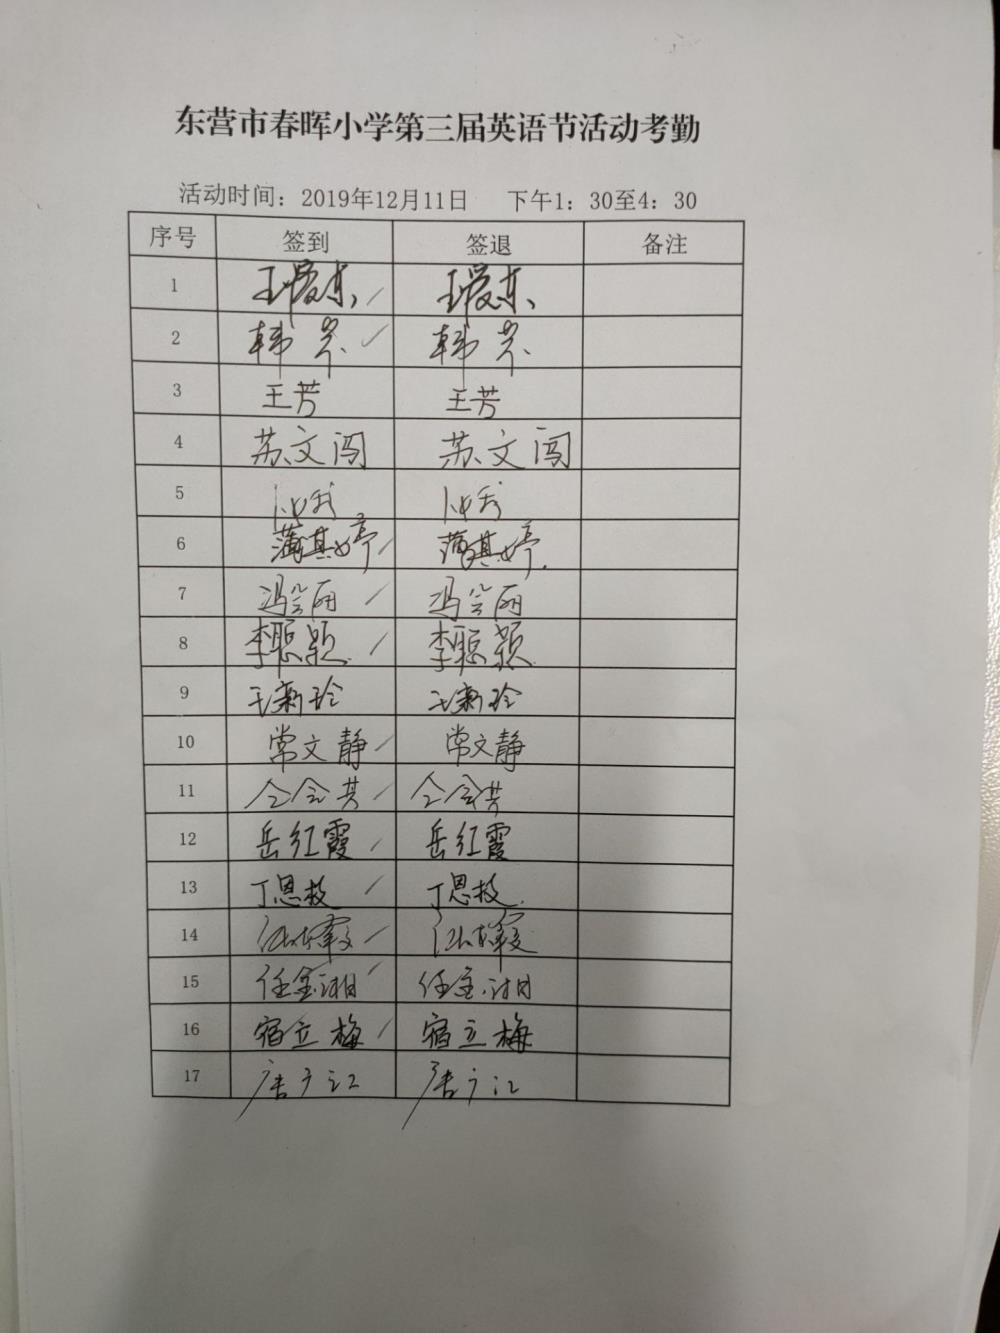 东营市春晖小学第三届英语节活动考勤
活动时间：2019年12月11日 下午1：30至4：30
序号 签到 签退 备注
1 王爱东 王爱东
2 韩芹 韩芹
3 王芳 王芳
4 苏文闯 苏文闯
5
6 蒲其婷 蒲其婷
7 冯会丽 冯会丽
8 李聪颖 李聪颖
9 王新玲 王新玲
10 常文静 常文静
11 仝会芸 仝会芸
12 岳红霞 岳红霞
13 丁恩技 丁恩技
14
15 任金湘 任金湘
16 宿立梅 宿立梅
17 唐广江 唐广江